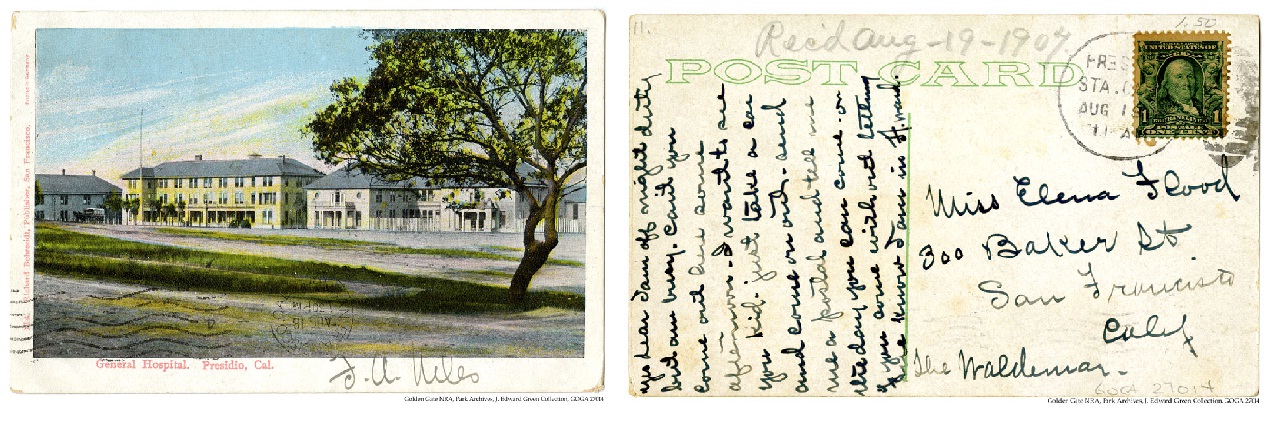 No. Richard Behrendt, Publisher, San Francisco.
General Hospital. Presidio, Cal.
F. A. Niles
Golden Gate NRA, Park Archives, J. Edward Green Collection, GOGA 27014
11.
1.50
Recd Aug-19-1907
POST CARD
PRES
STA.
AUG 1
11-A
UNITED STATES OF
FRANKLIN
1 1
yes dear I am off night duty
but am busy. Cant you
come out here some
afternoon. I want to see
you kid. just take a car
and come on out. send
me a postal and tell me
the day you can come. or
if you come with out letting
me know I am in H. ward.
Miss Elena Flood
300 Baker St
San Francisco
Calif
The Waldemar.
GOGA 27014
Golden Gate NRA, Park Archives, J. Edward Green Collection, GOGA 27014